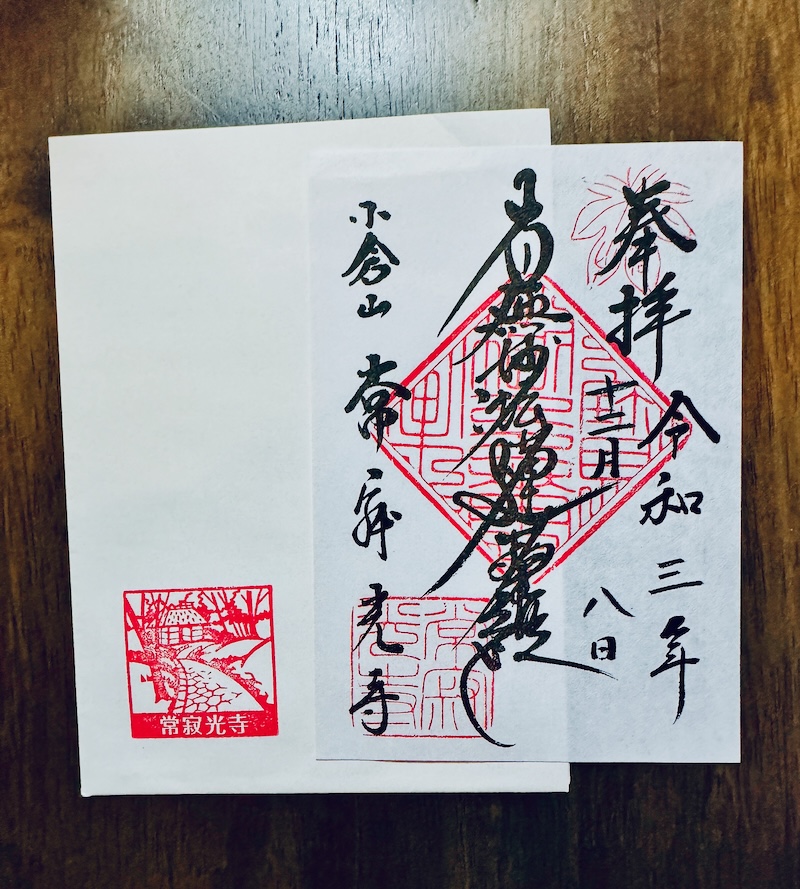 奉拝
令和三年
十二月八日
南無妙法蓮華経
小倉山 常寂光寺
常寂光寺